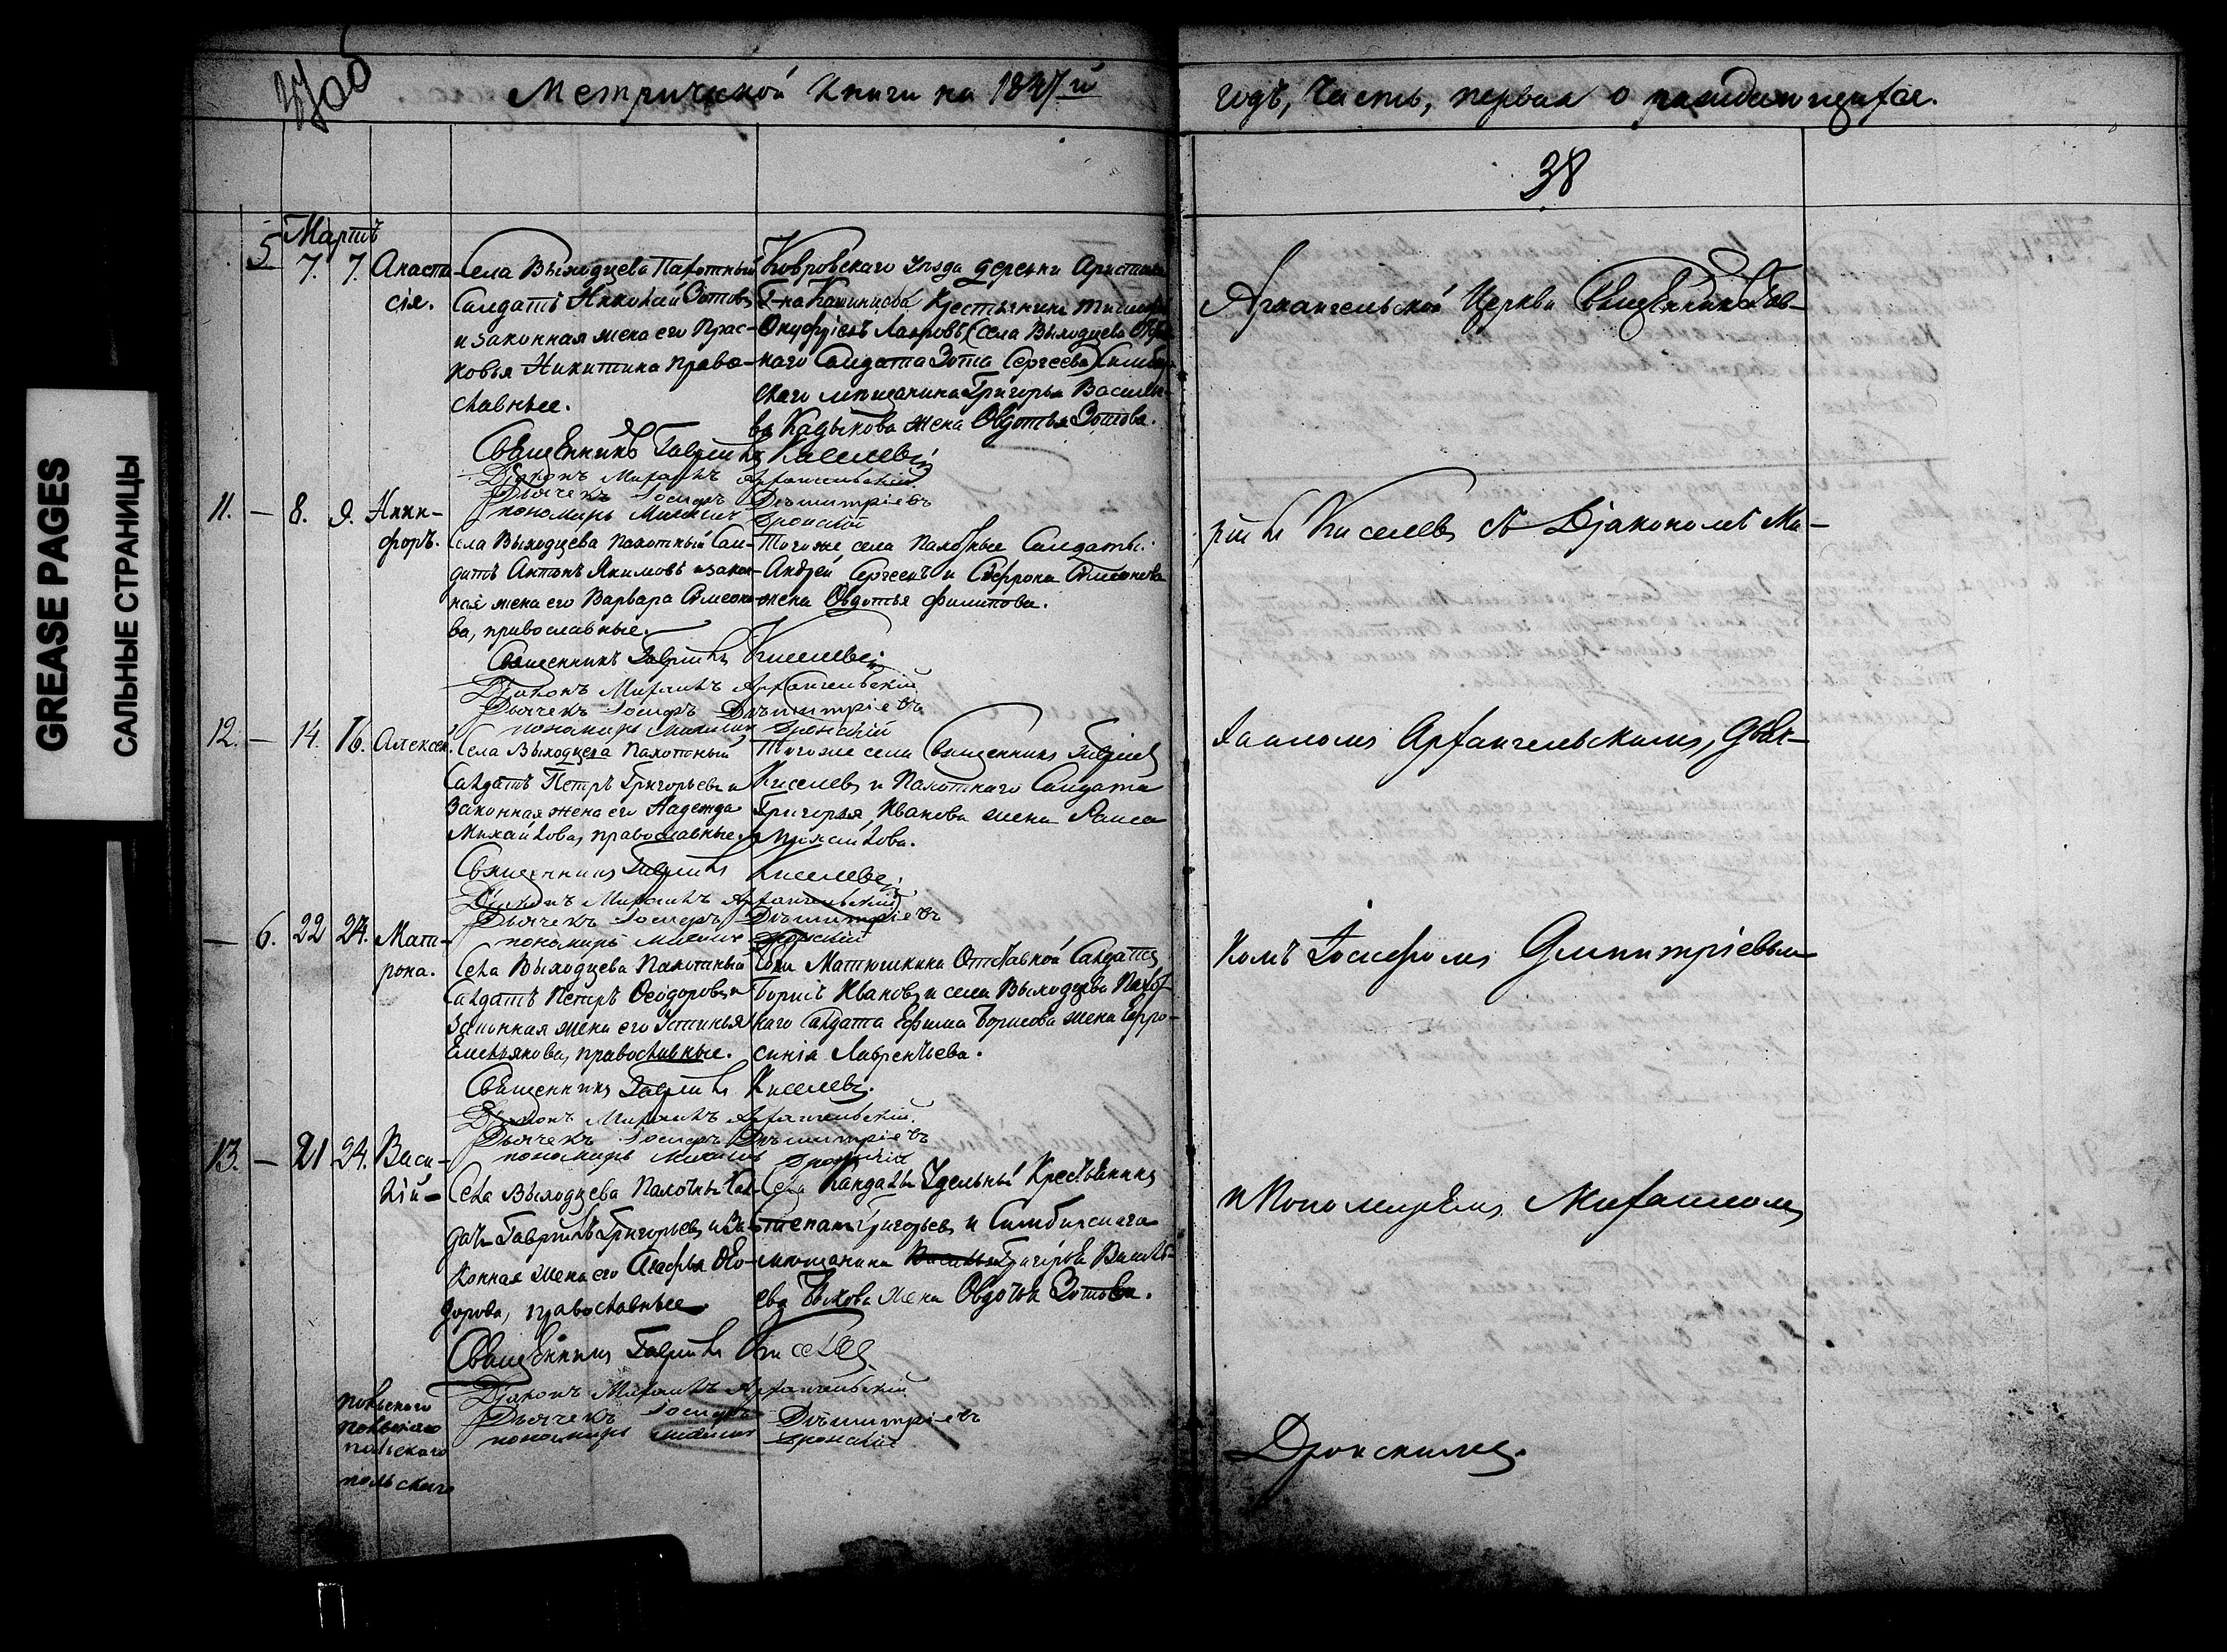 GREASE PAGES
САЛЬНЫЕ СТРАНИЦЫ
Метрической книги на 1847й
годъ, Часть, первая о раждающихся.
38
Мартъ
5 7. 7. Анаста-
сія.
Села Выходцева Пахотный
Салдатъ Николай Зотовъ
и законная жена его Прас-
ковья Никитина право-
славные.
Ковровскаго уезда деревни
Крестьянинъ
Онуфріевъ Лавровъ и Села Выходцева
наго Салдата Зота Сергеева
скаго мещанина Григорья Василье-
ва Кадыкова жена Овдотья Зотова.
Священникъ Гавріилъ Киселевъ
Діаконъ Михаилъ Архангельскій
Дьячекъ Іосифъ Дъмитріевъ
пономарь Михаилъ Дронскій
11. — 8. 9. Ники-
форъ.
Села Выходцева пахотный Сал-
датъ Антонъ Якимовъ и закон-
ная жена его Варвара Симеоно-
ва, православные.
Тогоже села Пахотные Салдаты:
Андрей Сергеевъ и Софрона Симеонова
жена Овдотья Филипова.
Священникъ Гавріилъ Киселевъ
Діаконъ Михаилъ Архангельскій
Дьячекъ Іосифъ Дъмитріевъ
пономарь Михаилъ Дронскій
12. — 14. 16. Алексей.
Села Выходцева пахотный
Салдатъ Петръ Григорьевъ и
Законная жена его Надежда
Михайлова, православные.
Тогоже села Священникъ Гавріилъ
Киселевъ и Пахотнаго Салдата
Григорья Иванова жена Раиса
Михайлова.
Священникъ Гавріилъ Киселевъ
Діаконъ Михаилъ Архангельскій
Дьячекъ Іосифъ Дъмитріевъ
пономарь Михаилъ Дронскій
— 6. 22 24. Мат-
рона.
Села Выходцева Пахотный
Салдатъ Петръ Феодоровъ и
Законная жена его Устинья
Емельянова, православные.
Матюшкина Отставной Салдатъ
Борисъ Ивановъ и села Выходцева Пахот-
наго Салдата Ефима Борисова жена Ефро-
синія Лаврентьева.
Священникъ Гавріилъ Киселевъ.
Діаконъ Михаилъ Архангельскій
Дьячекъ Іосифъ Дъмитріевъ
пономарь Михаилъ Дронскій
13. — 21 24. Васи-
лій —
Села Выходцева Пахотный Сал-
датъ Гавріилъ Григорьевъ и За-
конная жена его Агафья Фео-
дорова, православные.
Села Кандалы Удельный Крестьянинъ
Степанъ Григорьевъ и Симбирскаго
мещанина Григорья Василь-
ева жена Овдотья Зотова.
Священникъ Гавріилъ Киселевъ
Діаконъ Михаилъ Архангельскій
Дьячекъ Іосифъ Дъмитріевъ
пономарь Михаилъ Дронскій
польского
польского
польского
польскаго
Архангельской Церкви Священникъ Гав-
ріилъ Киселевъ съ Діакономъ Ми-
хаиломъ Архангельскимъ, Дьяч-
комъ Іосифомъ Димитріевым
и Пономаремъ Михаиломъ
Дронскимъ.